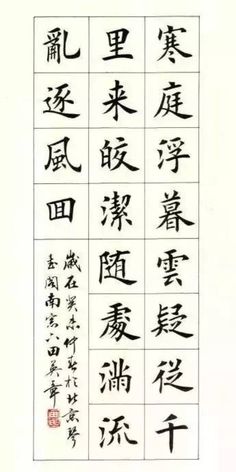 寒庭浮暮雲疑從千
里来皎潔随處滿流
亂逐風囬
歲在癸未仲春於北京琴
書閣南窓下田英章